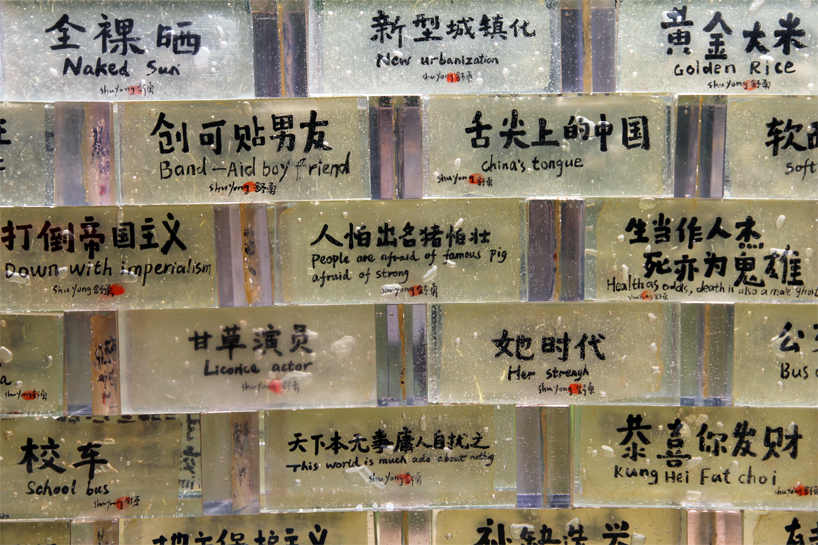 全裸晒
Naked Sun
shuyong 舒勇
新型城镇化
New urbanization
shuyong 舒勇
黄金大米
Golden Rice
shuyong 舒勇
创可贴男友
Band-Aid boy friend
shuyong 舒勇
舌尖上的中国
china's tongue
shuyong 舒勇
软
Soft
打倒帝国主义
Down with imperialism
shuyong 舒勇
人怕出名猪怕壮
People are afraid of famous pig
afraid of strong
shuyong 舒勇
生当作人杰
死亦为鬼雄
Health as odds, death is also a male ghost
shuyong 舒勇
a
shuyong 舒勇
甘草演员
Licorice actor
shuyong 舒勇
她时代
Her strengh
shuyong 舒勇
公
Bus
校车
School bus
shuyong 舒勇
天下本无事庸人自扰之
This world is much ado about nothing
shuyong 舒勇
恭喜你发财
Kung Hei Fat choi
shuyong
地方保护主义